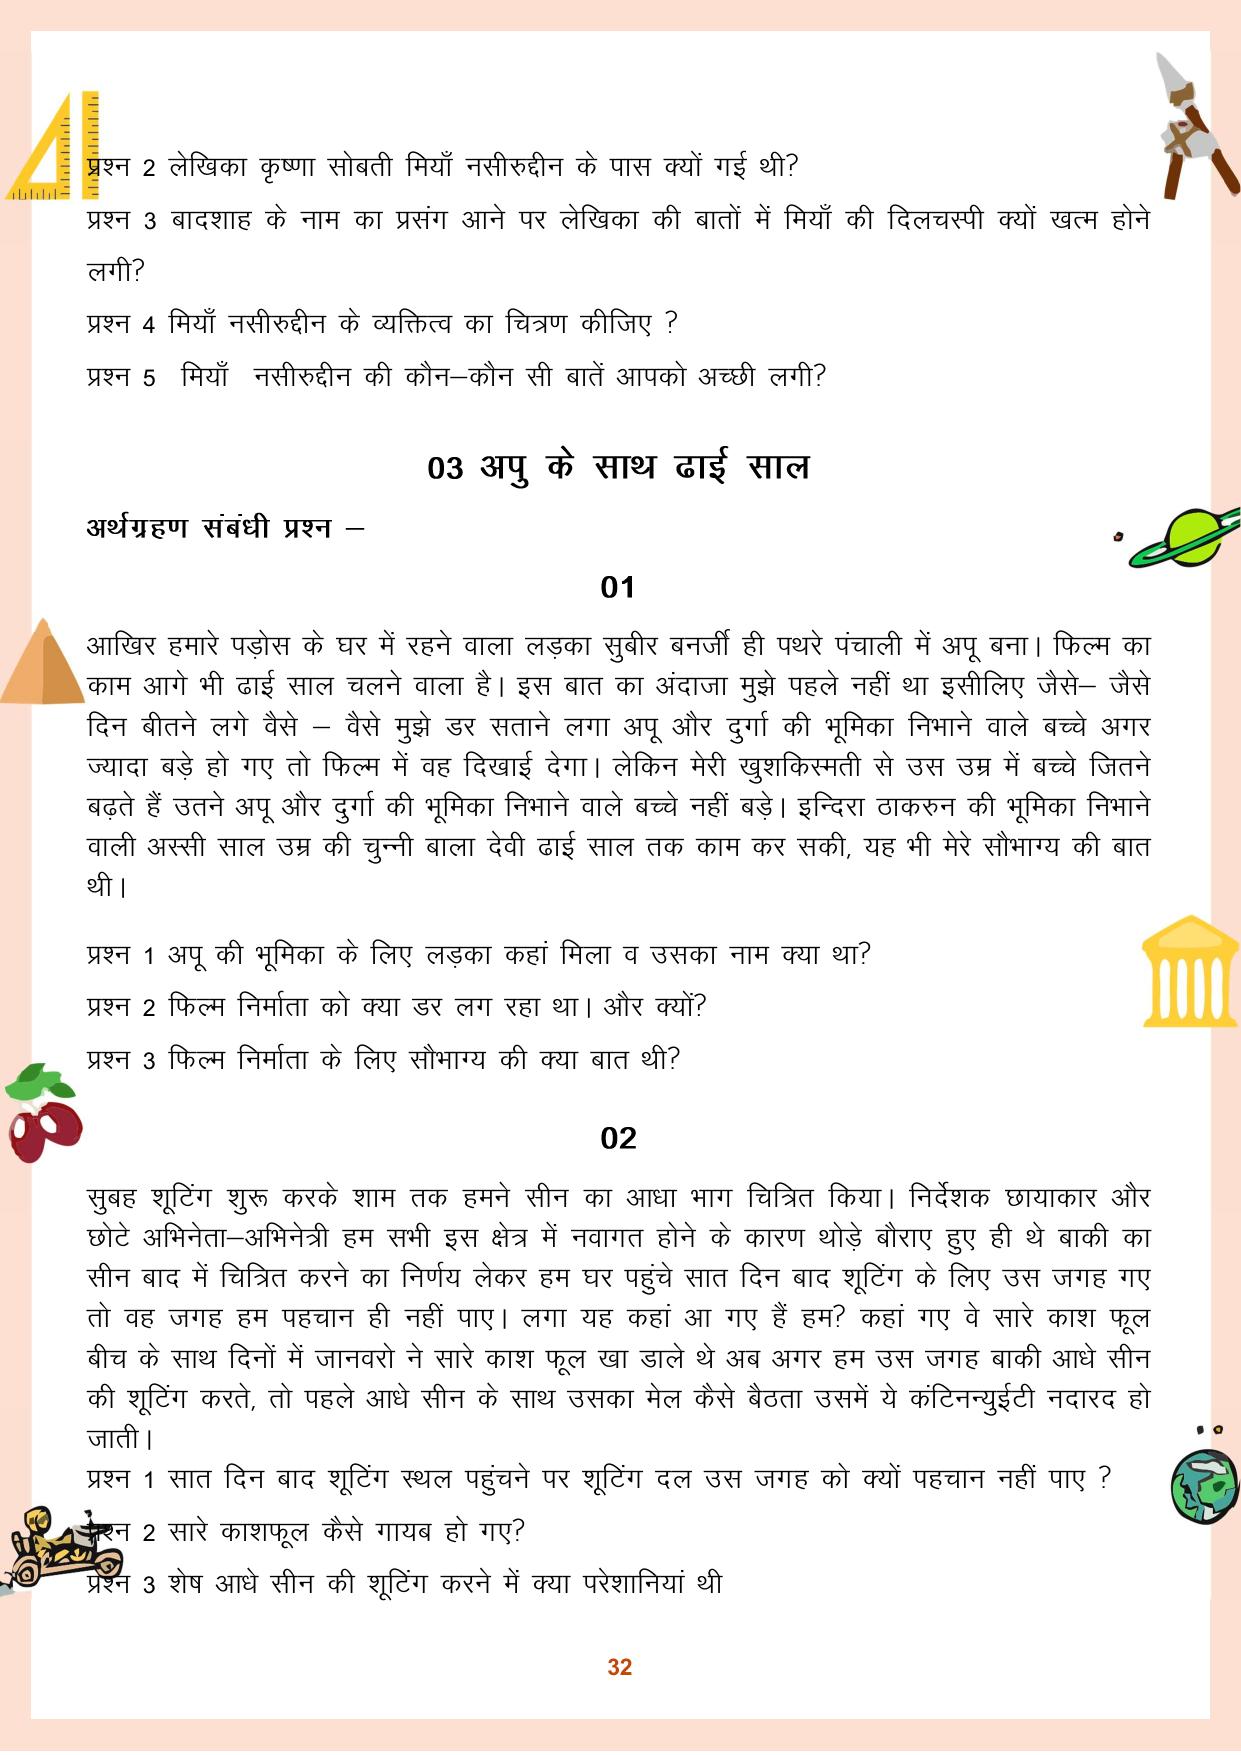 प्रश्न 2 लेखिका कृष्णा सोबती मियाँ नसीरुद्दीन के पास क्यों गई थी?
प्रश्न 3 बादशाह के नाम का प्रसंग आने पर लेखिका की बातों में मियाँ की दिलचस्पी क्यों खत्म होने
लगी?
प्रश्न 4 मियाँ नसीरुद्दीन के व्यक्तित्व का चित्रण कीजिए ?
प्रश्न 5 मियाँ नसीरुद्दीन की कौन–कौन सी बातें आपको अच्छी लगी?
03 अपु के साथ ढाई साल
अर्थग्रहण संबंधी प्रश्न –
01
आखिर हमारे पड़ोस के घर में रहने वाला लड़का सुबीर बनर्जी ही पथरे पंचाली में अपू बना। फिल्म का
काम आगे भी ढाई साल चलने वाला है। इस बात का अंदाजा मुझे पहले नहीं था इसीलिए जैसे– जैसे
दिन बीतने लगे वैसे – वैसे मुझे डर सताने लगा अपू और दुर्गा की भूमिका निभाने वाले बच्चे अगर
ज्यादा बड़े हो गए तो फिल्म में वह दिखाई देगा। लेकिन मेरी खुशकिस्मती से उस उम्र में बच्चे जितने
बढ़ते हैं उतने अपू और दुर्गा की भूमिका निभाने वाले बच्चे नहीं बड़े। इन्दिरा ठाकरुन की भूमिका निभाने
वाली अस्सी साल उम्र की चुन्नी बाला देवी ढाई साल तक काम कर सकी, यह भी मेरे सौभाग्य की बात
थी।
प्रश्न 1 अपू की भूमिका के लिए लड़का कहां मिला व उसका नाम क्या था?
प्रश्न 2 फिल्म निर्माता को क्या डर लग रहा था। और क्यों?
प्रश्न 3 फिल्म निर्माता के लिए सौभाग्य की क्या बात थी?
02
सुबह शूटिंग शुरू करके शाम तक हमने सीन का आधा भाग चित्रित किया। निर्देशक छायाकार और
छोटे अभिनेता–अभिनेत्री हम सभी इस क्षेत्र में नवागत होने के कारण थोड़े बौराए हुए ही थे बाकी का
सीन बाद में चित्रित करने का निर्णय लेकर हम घर पहुंचे सात दिन बाद शूटिंग के लिए उस जगह गए
तो वह जगह हम पहचान ही नहीं पाए। लगा यह कहां आ गए हैं हम? कहां गए वे सारे काश फूल
बीच के साथ दिनों में जानवरो ने सारे काश फूल खा डाले थे अब अगर हम उस जगह बाकी आधे सीन
की शूटिंग करते, तो पहले आधे सीन के साथ उसका मेल कैसे बैठता उसमें ये कंटिनन्युईटी नदारद हो
जाती।
प्रश्न 1 सात दिन बाद शूटिंग स्थल पहुंचने पर शूटिंग दल उस जगह को क्यों पहचान नहीं पाए ?
प्रश्न 2 सारे काशफूल कैसे गायब हो गए?
प्रश्न 3 शेष आधे सीन की शूटिंग करने में क्या परेशानियां थी
32